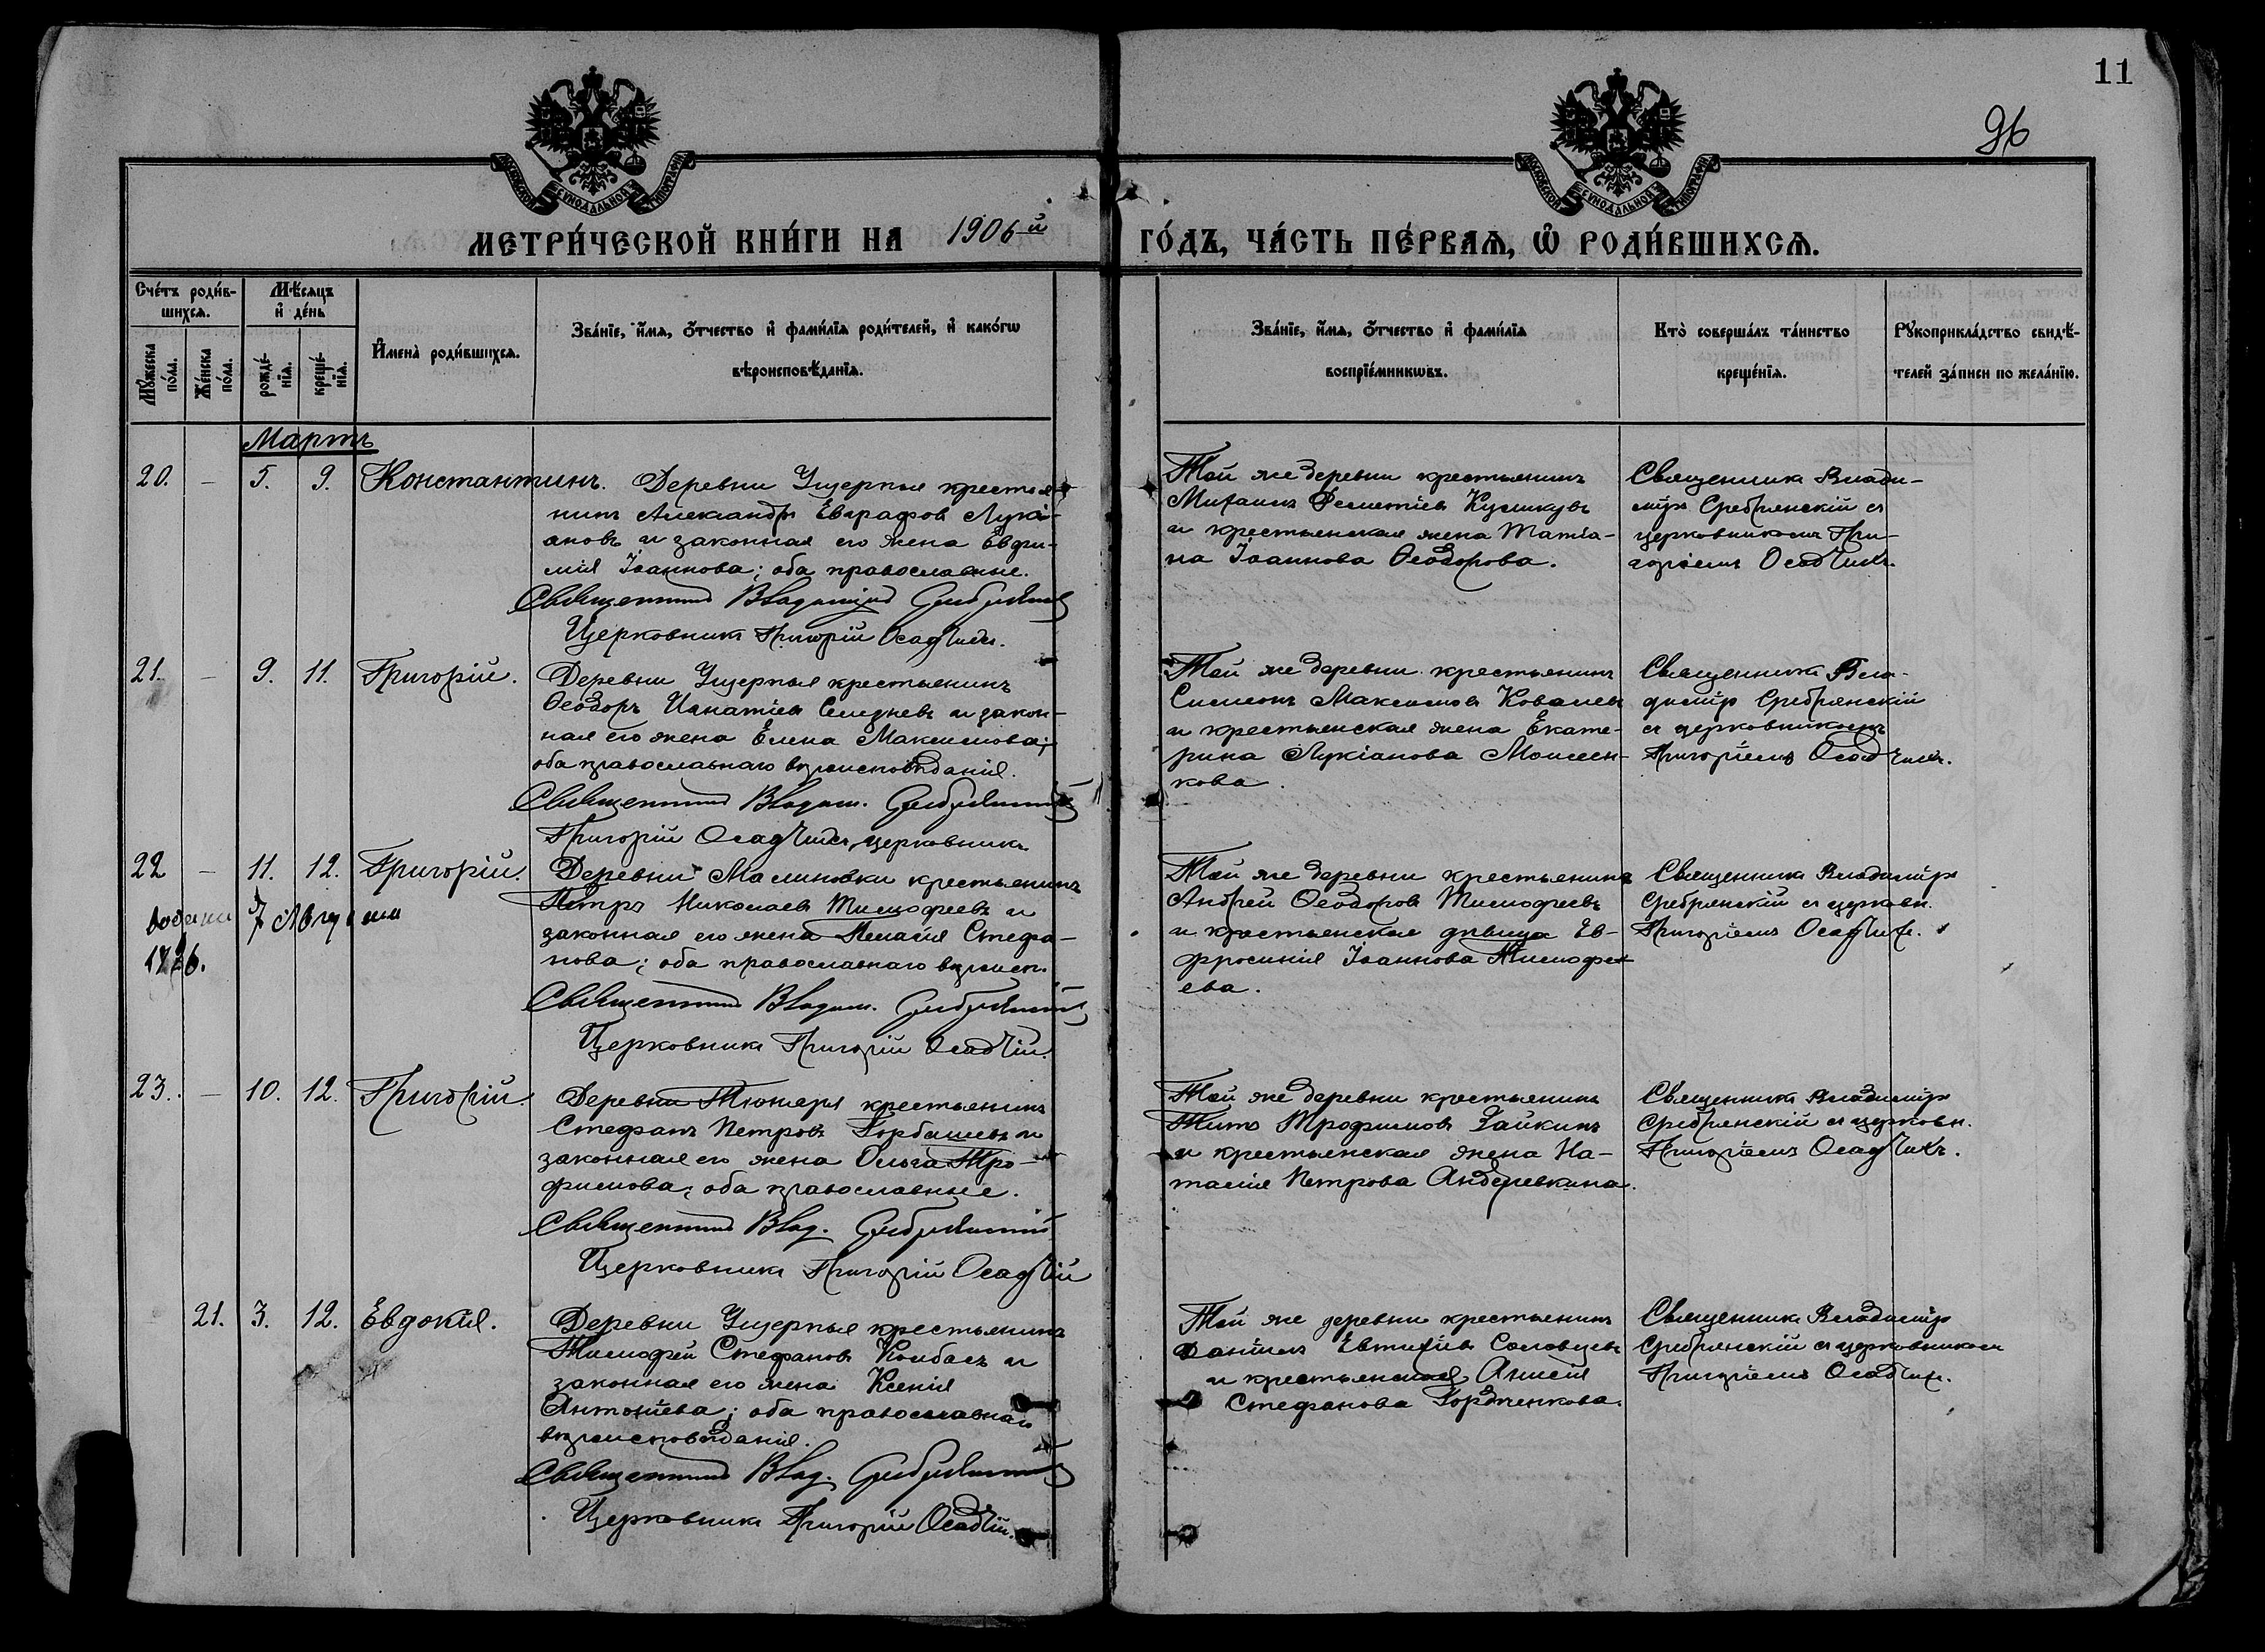 11
96
МОСКОВСКОЙ СУНОДАЛЬНОЙ ТИПОГРАФІИ
МОСКОВСКОЙ СУНОДАЛЬНОЙ ТИПОГРАФІИ
МЕТРИ́ЧЕСКОЙ КНИ́ГИ НА 1906й
ГО́ДЪ, ЧА́СТЬ ПЕ́РВАѦ, Ѡ҆ РОДИ́ВШИХСѦ.
Сче́тъ роди́в-
шихсѧ.
Мꙋ́жеска по́ла.
Же́нска по́ла.
Мѣ́сѧцъ и҆ де́нь
рожде́-нїѧ.
креще́-нїѧ.
И҆мена̀ роди́вшихсѧ.
Зва́нїе, и҆́мѧ, ѻ҆́тчество и҆ фами́лїѧ роди́телей, и҆ како́гѡ
вѣроисповѣ́данїѧ.
Зва́нїе, и҆́мѧ, ѻ҆́тчество и҆ фами́лїѧ
воспрїе́мникѡвъ.
Кто̀ соверша́лъ та́инство
креще́нїѧ.
Рꙋкоприкла́дство свидѣ́-
телей за́писи по жела́нїю.
Мартъ
20. — 5. 9. Константинъ. Деревни Ущерпья крестья-
нинъ Александръ Евграфовъ Лукі-
ановъ и законная его жена Евфи-
мія Іоаннова; оба православные.
Священникъ Владиміръ Сребрянскій
Церковникъ Григорій Осадчихъ.
Той же деревни крестьянинъ
Михаилъ
и крестьянская жена Татіа-
на Іоаннова Ѳеодорова.
Священникъ Влади-
міръ Сребрянскій съ
церковникомъ Гри-
горіемъ Осадчихъ.
21. — 9. 11. Григорій. Деревни Ущерпья крестьянинъ
Ѳеодоръ Игнатіевъ Селезневъ и закон-
ная его жена Елена Максимова;
оба православнаго вѣроисповѣданія.
Священникъ Владим. Сребрянскій
Григорій Осадчихъ, церковникъ.
Той же деревни крестьянинъ
Симеонъ Максимовъ Ковалевъ
и крестьянская жена Екате-
рина Лукіанова Моисеен-
кова.
Священникъ Вла-
диміръ Сребрянскій
съ церковникомъ
Григоріемъ Осадчимъ.
22 — 11. 12. Григорій. Деревни Малиновки крестьянинъ
Петръ Николаевъ Тимофеевъ и
законная его жена Пелагія Стефа-
нова; оба православнаго вѣроисп.
Священникъ Владим. Сребрянскій
Церковникъ Григорій Осадчій.
7 Августа
Той же деревни крестьянинъ
Андрей Ѳеодоровъ Тимофеевъ
и крестьянская дѣвица Ев-
фросинія Іоаннова Тимофе-
ева.
Священникъ Владиміръ
Сребрянскій съ церковн.
Григоріемъ Осадчих.
23. — 10. 12. Григорій. Деревни Тюнеръ крестьянинъ
Стефанъ Петровъ Горбашевъ и
законная его жена Ольга Тро-
фимова, оба православные.
Священникъ Влад. Сребрянскій
Церковникъ Григорій Осадчій
Той же деревни крестьянинъ
Титъ Трофимовъ Зайкинъ
и крестьянская жена На-
талія Петрова Андеревкина.
Священникъ Владиміръ
Сребрянскій съ церковн.
Григоріемъ Осадчихъ.
21. 3. 12. Евдокія. Деревни Ущерпья крестьянинъ
Тимофей Стефановъ Колбасъ и
законная его жена Ксенія
Антоніева; оба православнаго
вѣроисповѣданія.
Священникъ Влад. Сребрянскій
Церковникъ Григорій Осадчій.
Той же деревни крестьянинъ
Даніилъ Евтихіевъ Соловцевъ
и крестьянская Анисія
Стефанова Гордиенкова.
Священникъ Владиміръ
Сребрянскій съ церковникомъ
Григоріемъ Осадчих.